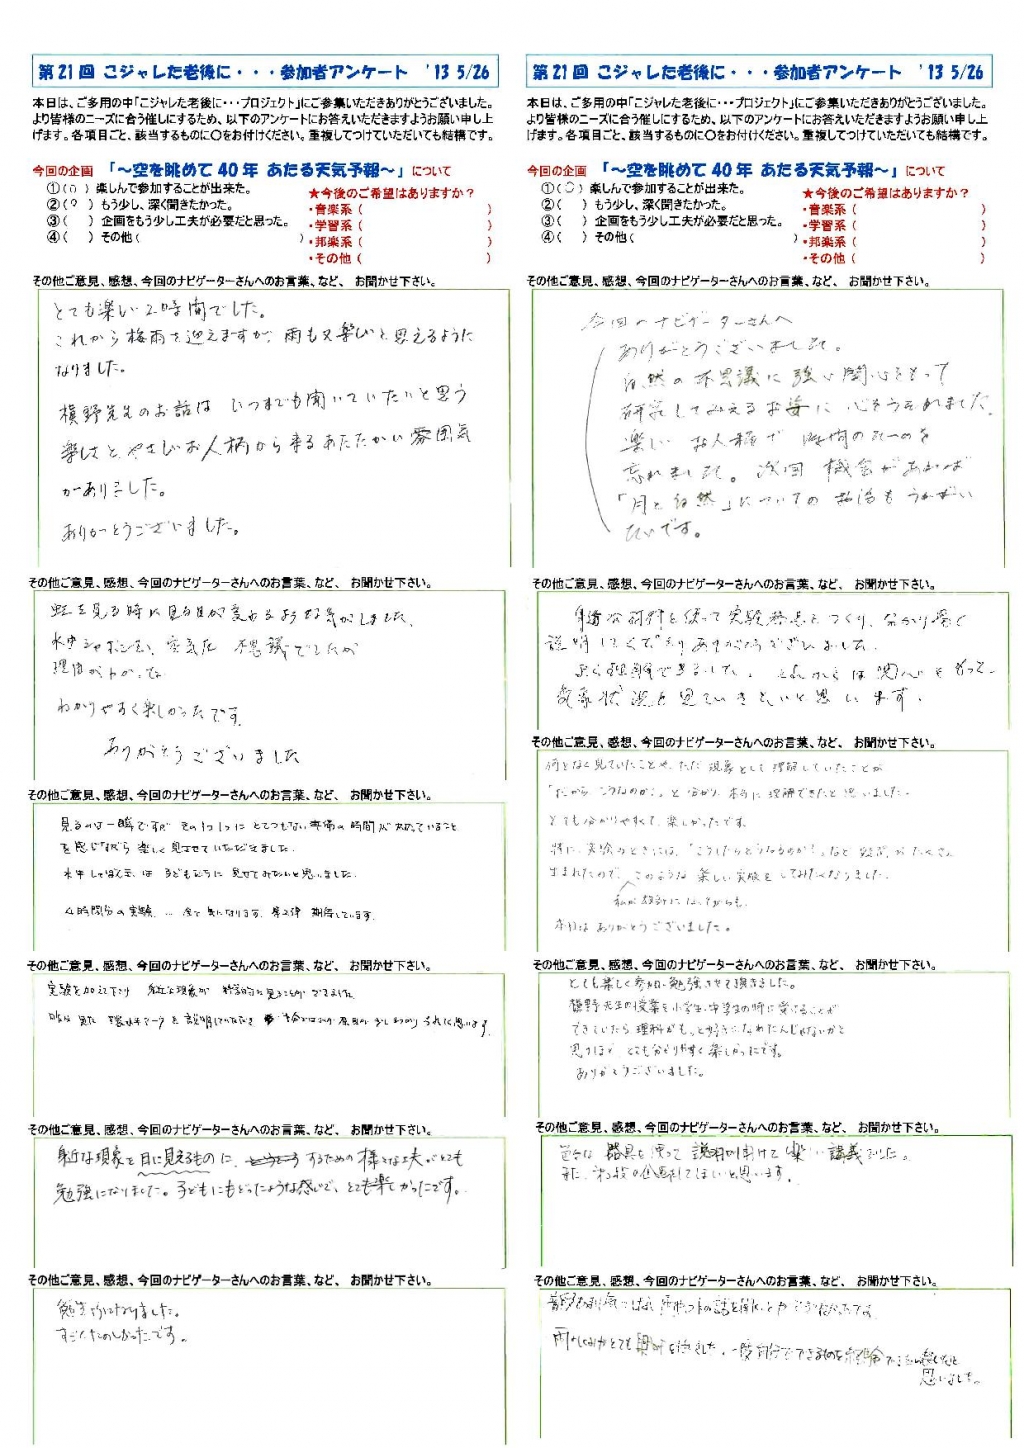 第21回 こジャレた老後に・・・参加者アンケート '13 5/26
本日は、ご多用の中「こジャレた老後に・・・プロジェクト」にご参集いただきありがとうございました。
より皆様のニーズに合う催しにするため、以下のアンケートにお答えいただきますようお願い申し上
げます。各項目ごと、該当するものに〇をお付けください。重複してつけていただいても結構です。
今回の企画 「～空を眺めて40年 あたる天気予報～」について
①(〇) 楽しんで参加することが出来た。
②( ) もう少し、深く聞きたかった。
③( ) 企画をもう少し工夫が必要だと思った。
④( ) その他( )
★今後のご希望はありますか？
・音楽系( )
・学習系( )
・邦楽系( )
・その他( )
その他ご意見、感想、今回のナビゲーターさんへのお言葉、など、 お聞かせ下さい。
とても楽しい2時間でした。
これから梅雨を迎えますが、雨も又楽しいと思えるように
なりました。
横野先生のお話は いつまでも聞いていたいと思う
楽しさと、やさしいお人柄から来るあたたかい雰囲気
がありました。
ありがとうございました。
その他ご意見、感想、今回のナビゲーターさんへのお言葉、など、 お聞かせ下さい。
虹を見る時に見る目が変わるような気がしました。
水中シャボン玉、空気だ 不思議でしたが
理由がわかった
わかりやすく楽しかったです。
ありがとうございました
その他ご意見、感想、今回のナビゲーターさんへのお言葉、など、 お聞かせ下さい。
見るのは一瞬ですが その1つ1つに とてつもない準備の時間がかかっていること
を感じながら 楽しく見させていただきました。
水中しゃぼん玉は 子どもたちに 見せてみたいと思いました。
4時間分の実験 … 全て気になります。第2弾 期待しています。
その他ご意見、感想、今回のナビゲーターさんへのお言葉、など、 お聞かせ下さい。
実験を加えて下さり 身近な現象が 科学的に見ることができました
その他ご意見、感想、今回のナビゲーターさんへのお言葉、など、 お聞かせ下さい。
身近な現象を目に見えるものに、 するための様々な工夫がとても
勉強になりました。子どもにもどったような感じで、とても楽しかったです。
その他ご意見、感想、今回のナビゲーターさんへのお言葉、など、 お聞かせ下さい。
勉強になりました。
すごくたのしかったです。
第21回 こジャレた老後に・・・参加者アンケート '13 5/26
本日は、ご多用の中「こジャレた老後に・・・プロジェクト」にご参集いただきありがとうございました。
より皆様のニーズに合う催しにするため、以下のアンケートにお答えいただきますようお願い申し上
げます。各項目ごと、該当するものに〇をお付けください。重複してつけていただいても結構です。
今回の企画 「～空を眺めて40年 あたる天気予報～」について
①(〇) 楽しんで参加することが出来た。
②( ) もう少し、深く聞きたかった。
③( ) 企画をもう少し工夫が必要だと思った。
④( ) その他( )
★今後のご希望はありますか？
・音楽系( )
・学習系( )
・邦楽系( )
・その他( )
その他ご意見、感想、今回のナビゲーターさんへのお言葉、など、 お聞かせ下さい。
今回のナビゲーターさんへ
ありがとうございました。
自然の不思議に強い関心をもって
研究してみえるお姿に 心をうたれました。
楽しいお人柄で 時間のたつのを
忘れました。次回 機会があれば
「月と自然」についてのお話もうかがい
たいです。
その他ご意見、感想、今回のナビゲーターさんへのお言葉、など、 お聞かせ下さい。
身近な材料を使って実験器具をつくり、分かり易く
説明してくださりありがとうございました。
よく理解できました。これからは関心をもって、
気象状況を見ていきたいと思います。
その他ご意見、感想、今回のナビゲーターさんへのお言葉、など、 お聞かせ下さい。
何となく見ていたことや、ただ現象として理解していたことが
「だから こうなのか！」と分かり、本当に理解できたと思いました。
とても分かりやすくて、楽しかったです。
特に、実験のときには、「こうしたらどうなるのか？」など 疑問がたくさん
生まれたので、このような 楽しい実験をしてみたくなりました。
私が教師になってからも、
本日は ありがとうございました。
その他ご意見、感想、今回のナビゲーターさんへのお言葉、など、 お聞かせ下さい。
とても楽しく参加、勉強させて頂きました。
横野先生の授業を小学生、中学生の時に受けることが
できていたら 理科がもっと好きになれたんじゃないかと
思うほど、とても分かりやすく楽しかったです。
ありがとうございました。
その他ご意見、感想、今回のナビゲーターさんへのお言葉、など、 お聞かせ下さい。
色々な 器具を使って 説明が聞けて 楽しい講義でした。
また、第2段の企画をしてほしいと思います。
その他ご意見、感想、今回のナビゲーターさんへのお言葉、など、 お聞かせ下さい。
思いました。